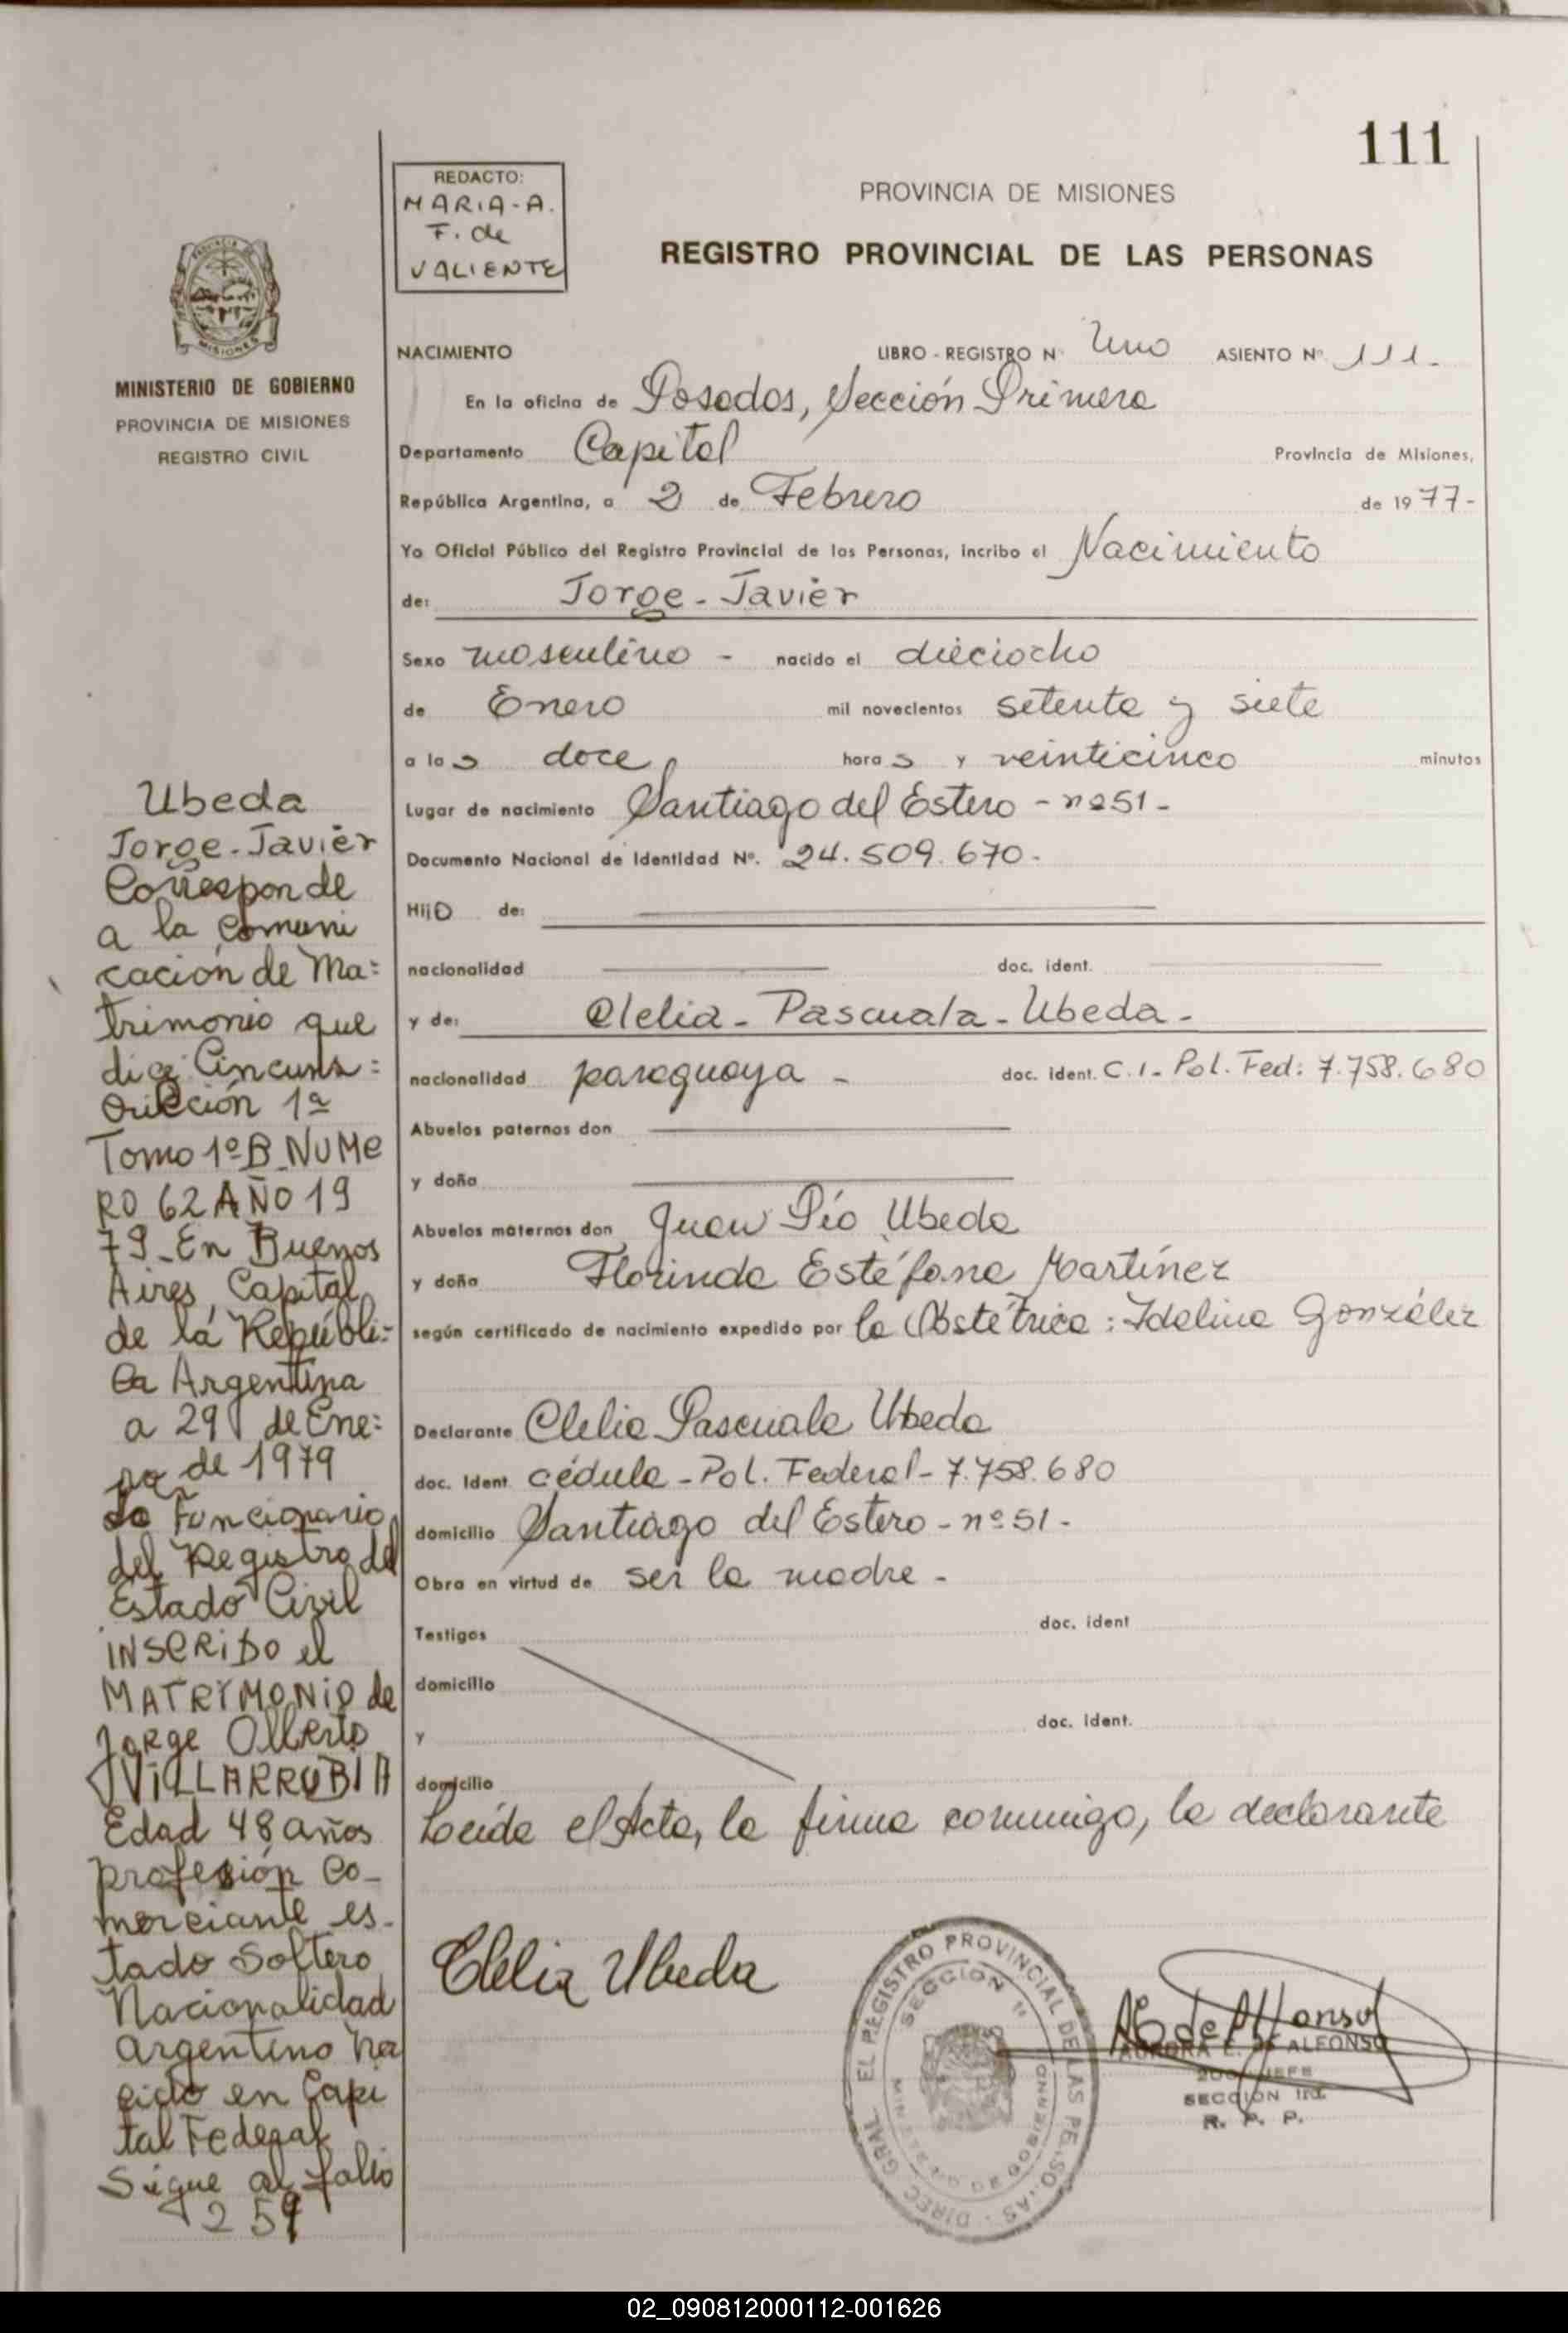 111
REDACTO:
MARIA-A.
F. de
VALIENTE
PROVINCIA DE MISIONES
REGISTRO PROVINCIAL DE LAS PERSONAS
MISIONES
MINISTERIO DE GOBIERNO
PROVINCIA DE MISIONES
REGISTRO CIVIL
NACIMIENTO LIBRO - REGISTRO Nº Uno ASIENTO Nº 111.-
En la oficina de Posadas, Sección Primera
Departamento Capital Provincia de Misiones,
República Argentina, a 2 de Febrero de 1977-
Yo Oficial Público del Registro Provincial de las Personas, incribo el Nacimiento
de: Jorge-Javier
Sexo masculino - nacido el dieciocho
de Enero mil novecientos setenta y siete
a las doce horas y veinticinco minutos
Lugar de nacimiento Santiago del Estero - nº51-
Documento Nacional de Identidad Nº. 24.509.670-
Hijo de:
nacionalidad doc. ident.
y de: Clelia-Pascuala-Ubeda-
nacionalidad paraguaya - doc. ident. C.I.-Pol. Fed: 7.758.680
Abuelos paternos don
y doña
Abuelos maternos don Juan Pío Ubeda
y doña Florinda Estéfana Martínez
según certificado de nacimiento expedido por la Obstétrica: Idalina González
Declarante Clelia Pascuala Ubeda
doc. Ident cédula-Pol. Federal-7.758.680
domicilio Santiago del Estero-nº51-
Obra en virtud de ser la madre-
Testigos doc. ident
domicilio
y doc. ident.
domicilio
Leída el Acta, la firma conmigo, la declarante
Clelia Ubeda
DIREC. GRAL. EL REGISTRO PROVINCIAL DE LAS PERSONAS
SECCION 1ª
MINISTERIO DE GOBIERNO
AE de Alfonso
AURORA E. DE ALFONSO
JEFE
SECCION 1ra.
R. P. P.
Ubeda
Jorge-Javier
Corresponde
a la Comuni
cación de Ma=
trimonio que
dice Circuns=
cripción 1ª
Tomo 1º B NUME
RO 62 AÑO 19
79-En Buenos
Aires, Capital
de la Repúbli=
ca Argentina
a 29 de Ene=
ro de 1979
yo Funcionario
del Registro del
Estado Civil
INSCRIBO el
MATRIMONIO de
Jorge Alberto
VILLARRUBIA
Edad 48 años
profesión Co-
merciante es-
tado Soltero
Nacionalidad
argentino na
cido en Capi
tal Federal
Sigue al folio
259
02_090812000112-001626